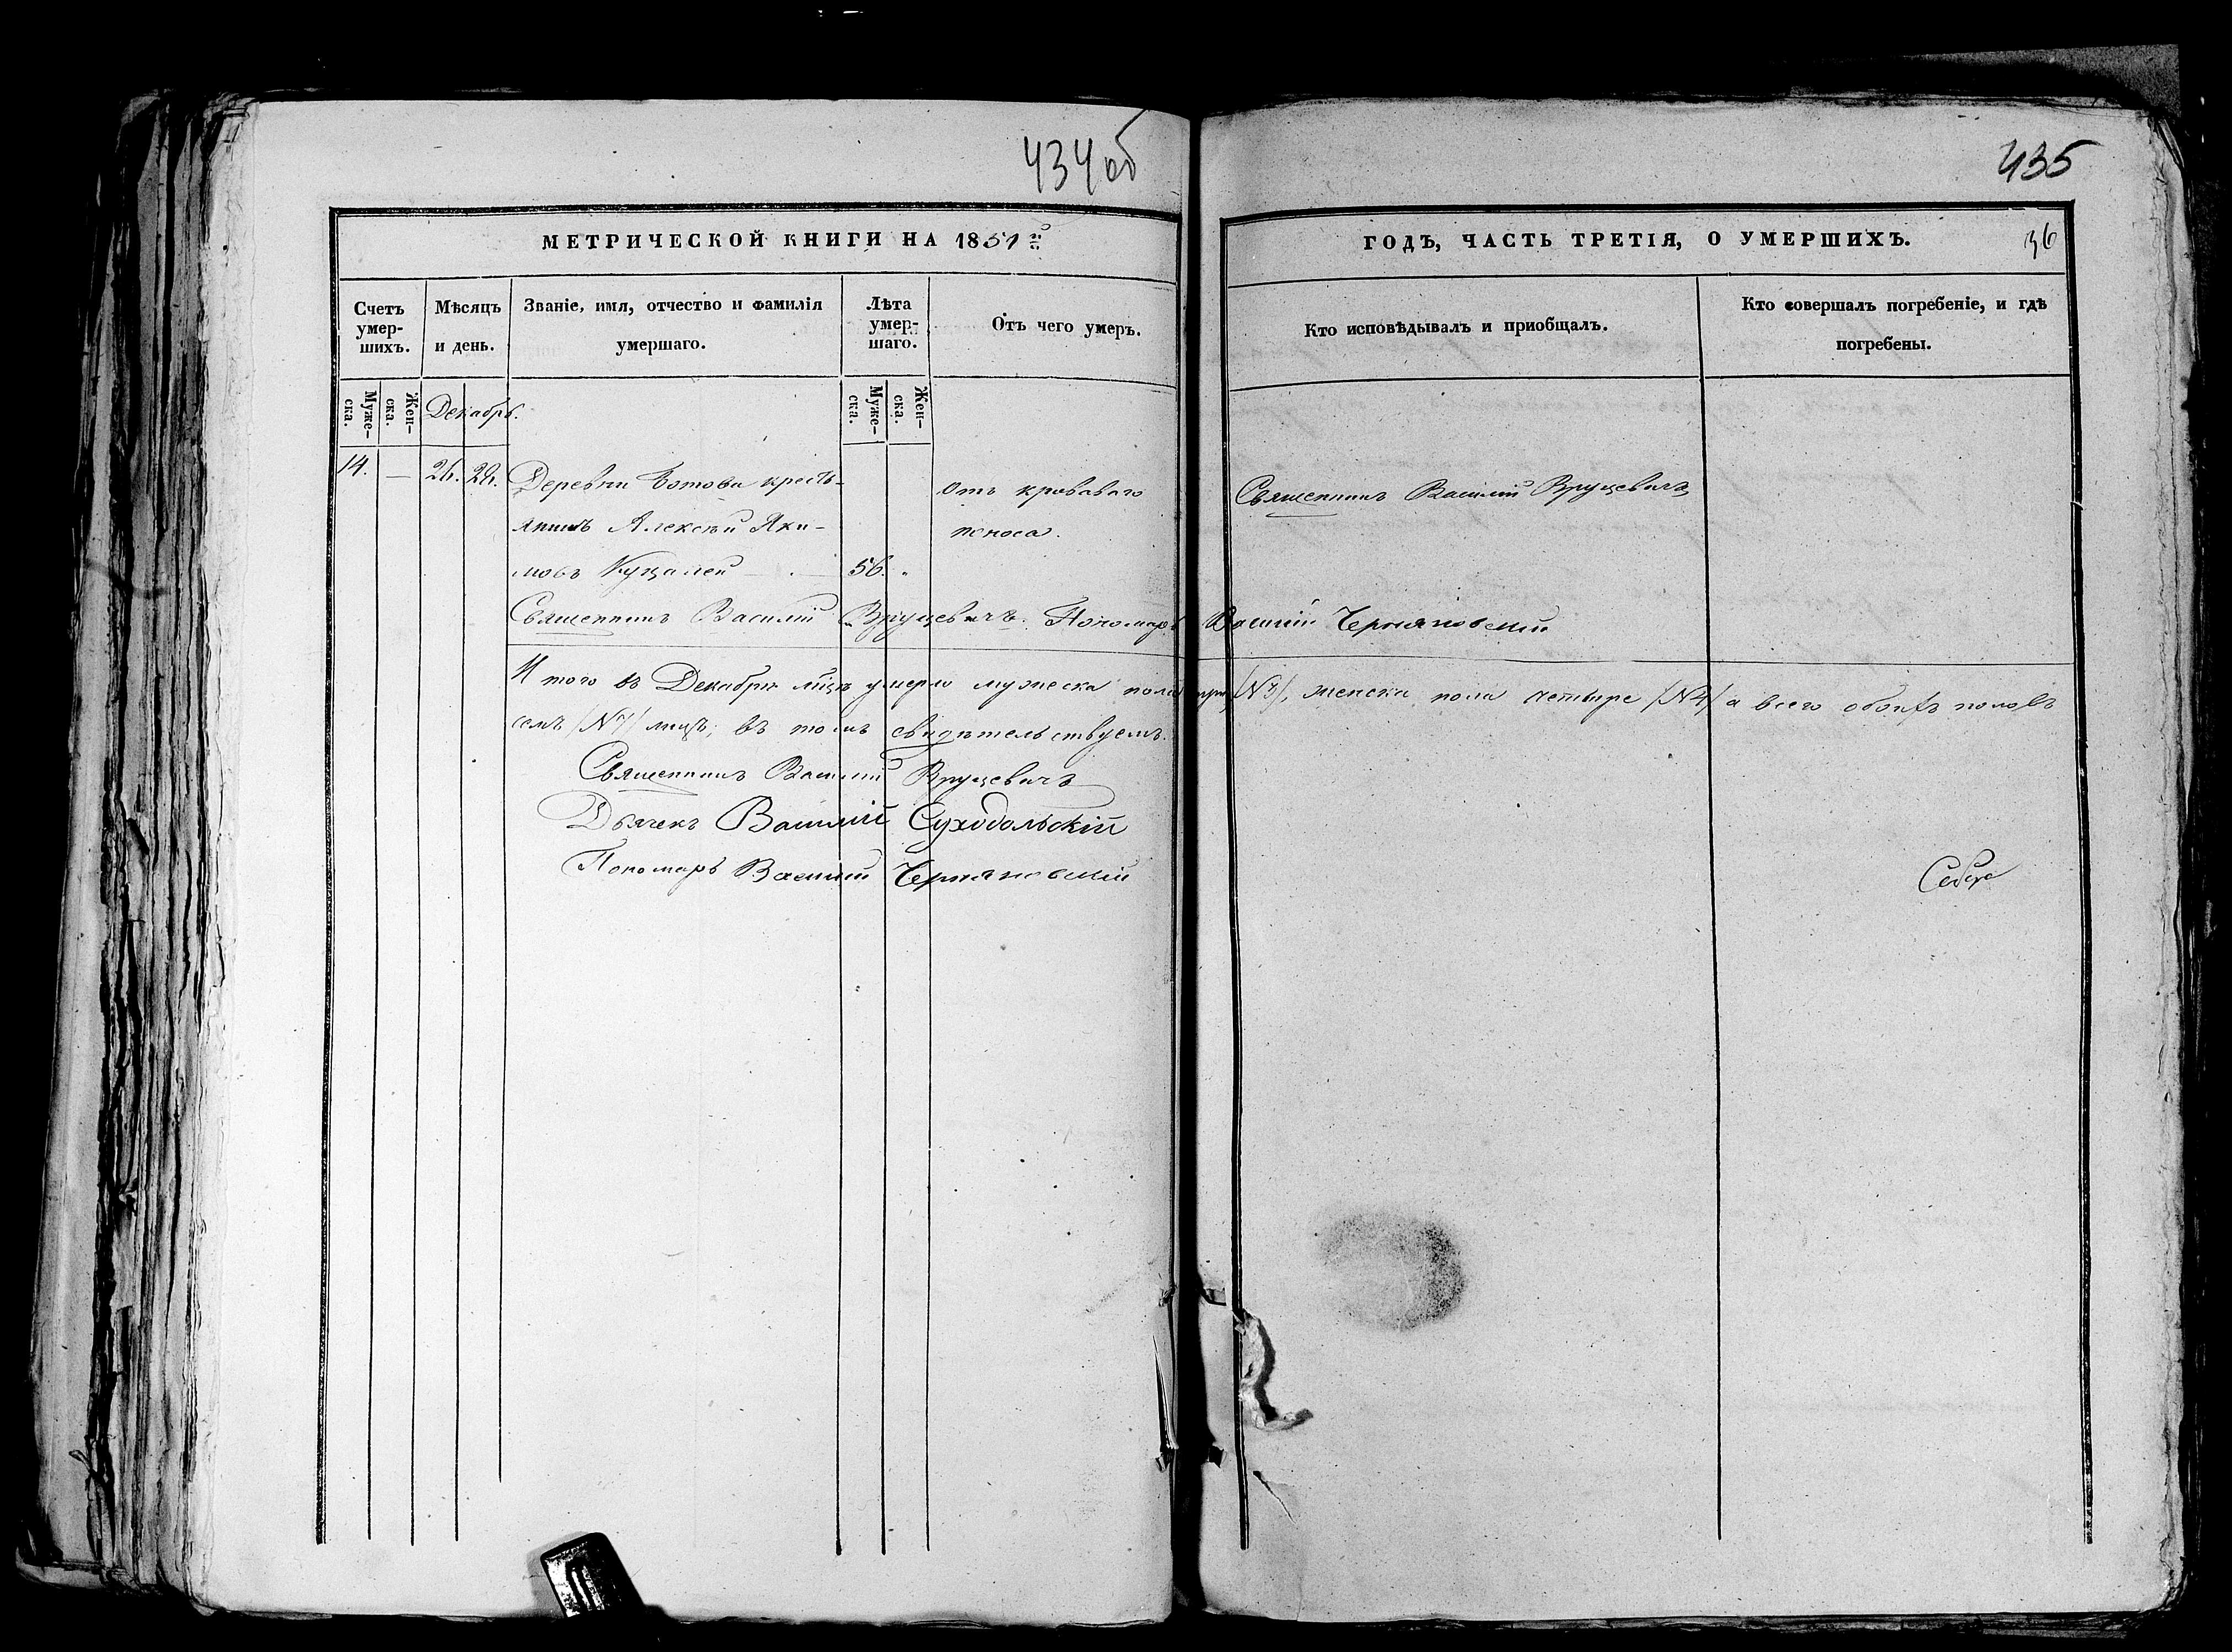 434 об
435
МЕТРИЧЕСКОЙ КНИГИ НА 1851й
ГОДЪ, ЧАСТЬ ТРЕТІЯ, О УМЕРШИХЪ.
36
Счетъ умер-шихъ.
Мѣсяцъ и день.
Званіе, имя, отчество и фамилія умершаго.
Лѣта умер-шаго.
Отъ чего умеръ.
Кто исповѣдывалъ и приобщалъ.
Кто совершалъ погребеніе, и гдѣ погребены.
Муже-ска.
Жен-ска.
Декабрь.
Муже-ска.
Жен-ска.
14. — 26. 28. Деревни кресть-
янинъ Алексѣй Яки-
мовъ 56.
Отъ кроваваго
поноса.
Священникъ Василій Вруцевичъ
Священникъ Василій Вруцевичъ. Пономарь Василій Черняковскій
И того въ Декабрѣ мцѣ умерло мужеска пола три /№3/, женска пола четыре /№4/ а всего обоихъ половъ
семь /№7/ лицъ; въ томъ свидѣтельствуемъ.
Священникъ Василій Вруцевичъ
Дьячекъ Василій Суходольскій
Пономарь Василій Черняковскій